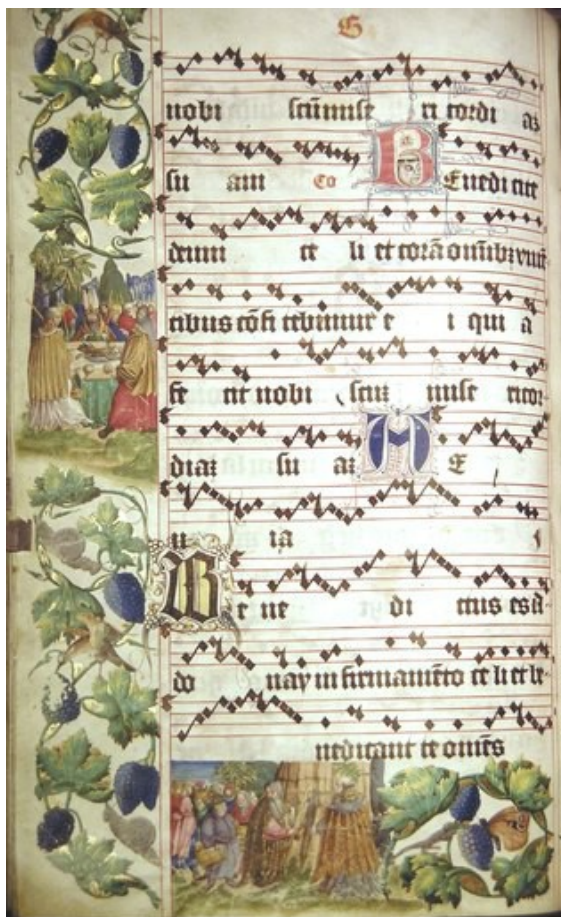 nobi scū mise ri cordi az
su am Co BEnedicite
deum ce li et corā omībz viuē
tibus cōfi tebimur e i qui a
fe cit nobi scuz mise ricor
diaz su az A E
u ia
Be ne di ctus es a
do nay in firmamēto ce li et be
nedicant te omēs